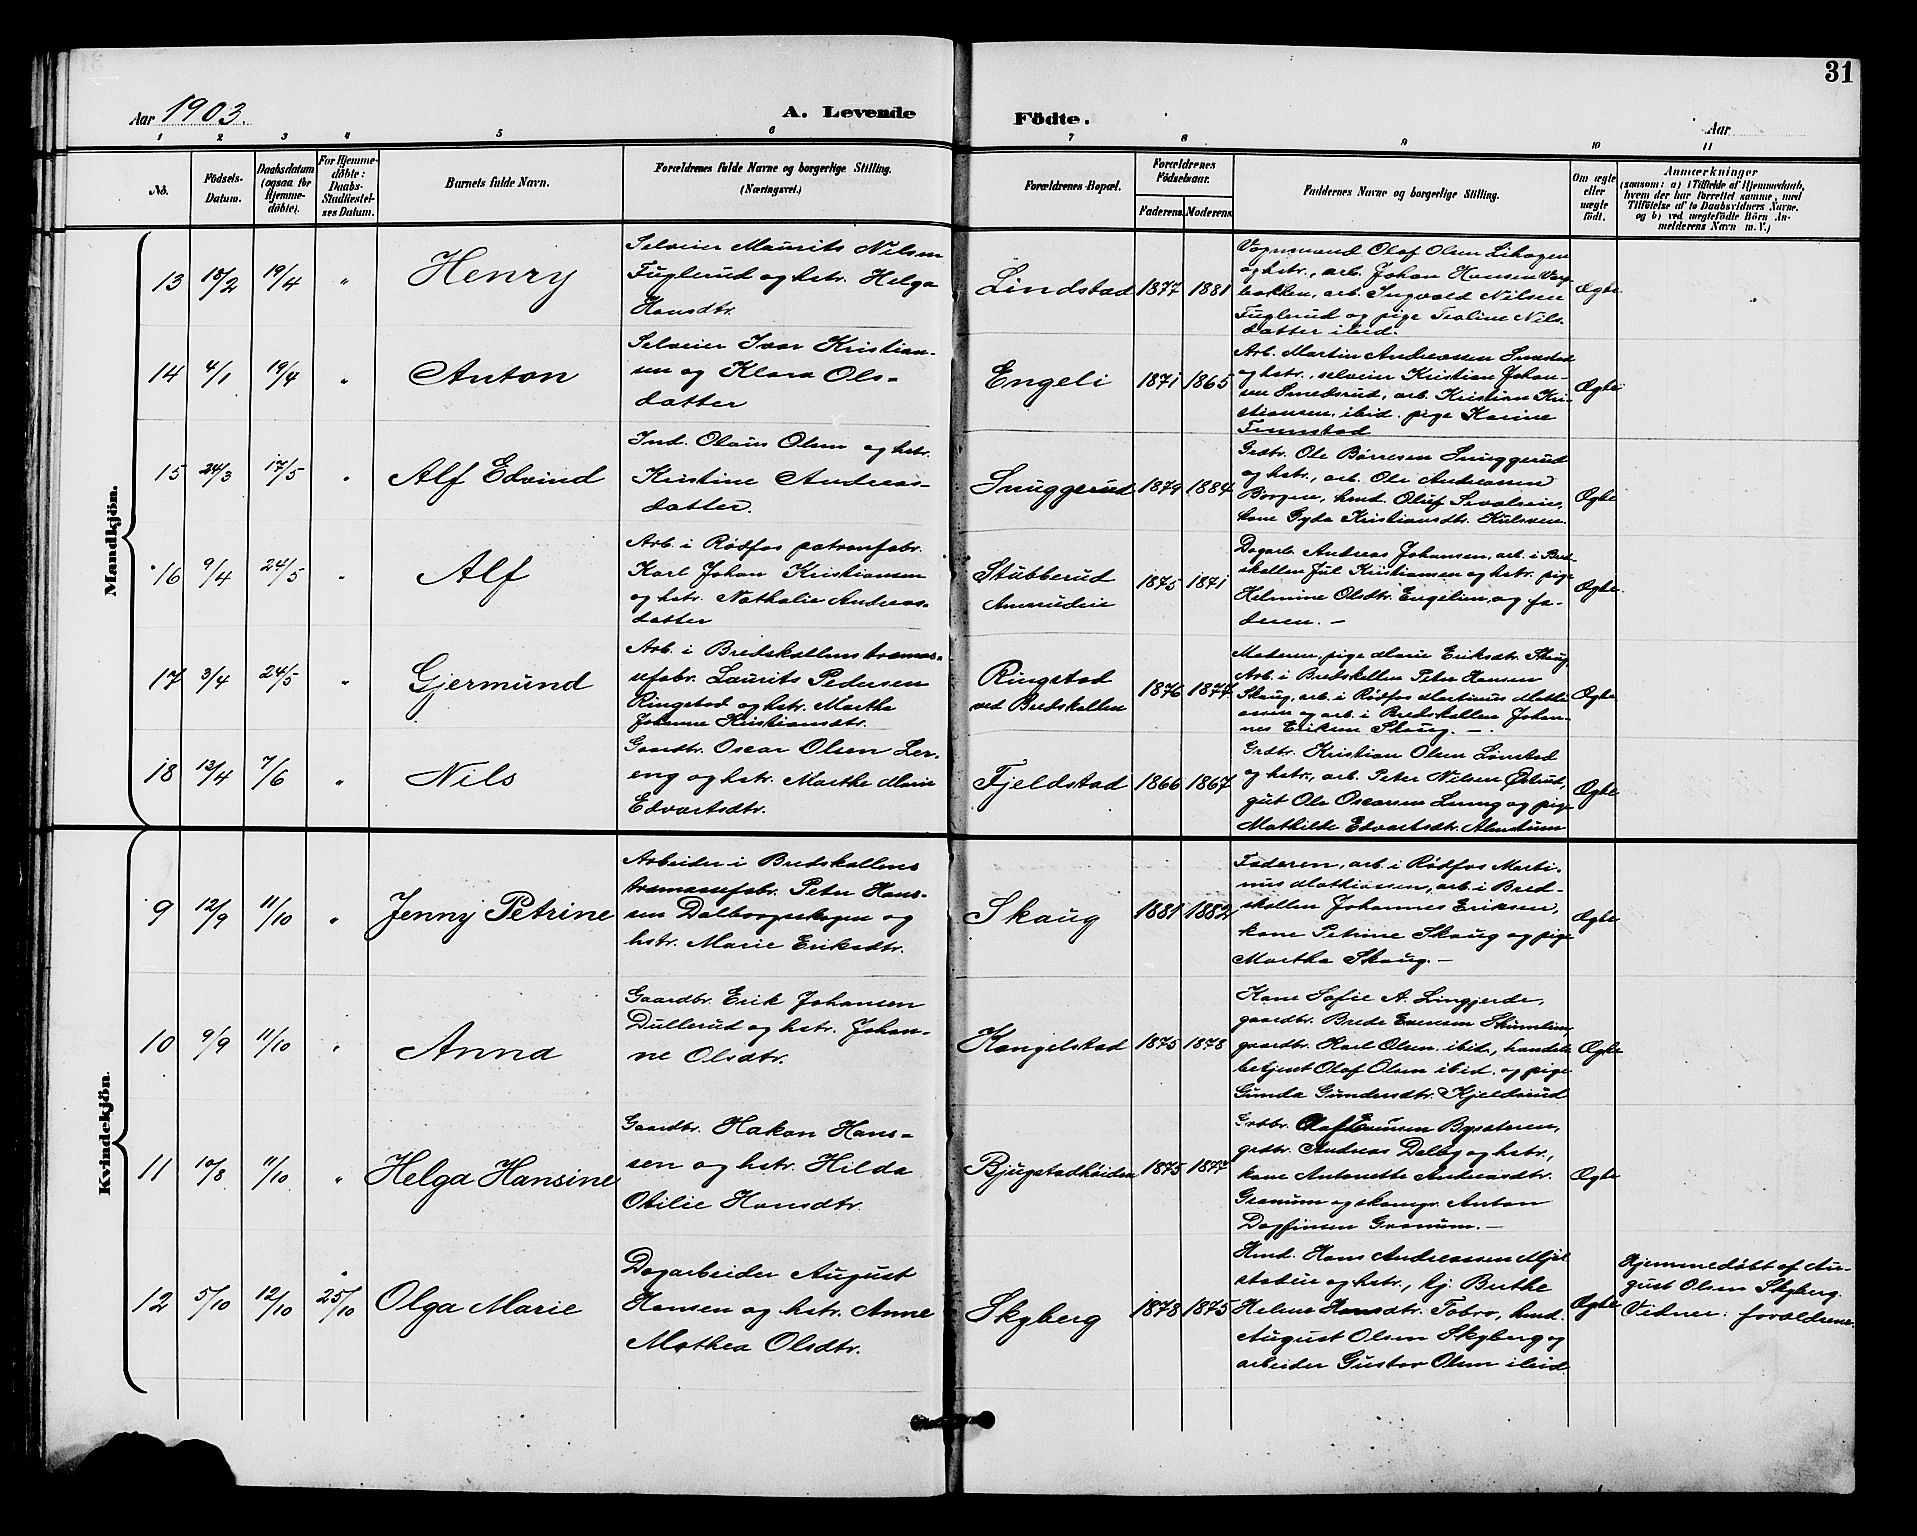 31
Aar 1903.
A. Levende Födte.
Aar
1 2 3 4 5 6 7 8 9 10 11
No.
Födsels-
Datum.
Daabsdatum
(ogsaa for
Hjemme-
döbte).
For Hjemme-
döbte:
Daabs-
Stadfæstel-
ses Datum.
Barnets fulde Navn.
Forældrenes fulde Navne og borgerlige Stilling.
(Næringsvei.)
Forældrenes Bopæl.
Forældrenes
Födselsaar.
Faderens Moderens
Faddernes Navne og borgerlige Stilling.
Om ægte
eller
uægte
født.
Anmærkninger
(saasom: a) i Tilfælde af Hjemmedaab,
hvem der har forrettet samme, med
Tilföielse af to Daabsvidners Navne.
og b) ved uægtefödte Börn An-
melderens Navn m. V.)
Mandkjön.
13 18/2 19/4 " Henry
Selveier Maurits Nilsen
Fuglerud og hstr. Helga
Hansdtr.
Lindstad 1877 1881
Vognmand Olaf Olsen Lihagen
og hstr., arb. Johan Hansen
bakken, arb. Ingvald Nilsen
Fuglerud og pige Nils-
datter ibid.
Ægte
14 4/1 19/4 " Anton
Selveier Ivar Kristian-
sen og Klara Ols-
datter
Engeli 1871 1865
Arb. Martin Andreassen
og hstr., selveier Kristian Johan-
sen Smedsrud, arb. Kristian Kri-
stiansen ibid. pige Karine
Finnstad
Ægte
15 24/3 17/5 " Alf Edvind
Ind. Olaus Olsen og hstr.
Kristine Andreas-
datter.
Snuggerud 1879 1884
Grdbr. Ole Börresen Snuggerud
og hstr., arb. Ole Andreassen
hmd. Oluf
kone Gyda Kristiansdtr.
Ægte
16 9/4 24/5 " Alf
Arb. i Rödfos patronfabr.
Karl Johan Kristiansen
og hstr. Nathalie Andreas-
datter
Stubberud
1875 1871
Dagarb. Andreas Johansen, arb. i Bred-
skallen Jul Kristiansen og hstr. pige
Helmine Olsdtr. Engelien, og fa-
deren. -
Ægte
17 3/4 24/5 " Gjermund
Arb. i Bredskallens træmas-
sefabr. Laurits Pedersen
Ringstad og hstr. Martha
Johanne Kristiansdtr.
Ringstad
ved Bredskallen
1876 1874
Moderen, pige Marie Eriksdtr. Skaug
Arb. i Bredskallen Peter Hansen
Skaug, arb. i Rödfos Martinus Mathi-
assen og arb. i Bredskallen Johan-
nes Eriksen Skaug. -
Ægte
18 13/4 7/6 " Nils
Gaardbr. Oscar Olsen Ler-
eng og hstr. Marthe Marie
Edvartsdtr.
Fjeldstad 1866 1867
Grdbr. Kristian Olsen
og hstr., arb. Peter Nilsen
gut Ole Oscarsen og pige
Mathilde Edvartsdtr.
Ægte
Kvindekjön.
9 12/9 11/10 " Jenny Petrine
Arbeider i Bredskallens
træmassefabr. Peter Han-
sen Dalborgeskogen og
hstr. Marie Eriksdtr.
Skaug 1881 1882
Faderen, arb. i Rödfos Marti-
nus Mathiassen, arb. i Bred-
skallen Johannes Eriksen,
kone Petrine Skaug og pige
Martha Skaug. -
Ægte
10 9/9 11/10 " Anna
Gaardbr. Erik Johansen
Dullerud og hstr. Johan-
ne Olsdtr.
Kongelstad 1875 1878
Kone Sofie A. Lingjerde,
gaardbr. Brede Evensen
gaardbr. Karl Olsen ibid., handels-
betjent Olaf Olsen ibid. og pige
Gunda Gundersdtr. Kjeldsrud
Ægte
11 10/8 11/10 " Helga Hansine
Gaardbr. Hakon Han-
sen og hstr. Hilda
Otilie Hansdtr.
Bjugstadhöiden 1875 1877
Grdbr. Olaf Bysæteren,
grdbr. Andreas Dalby og hstr.,
kone Antonette Andreasdtr.
Granum og Anton
Dagfinsen Granum. -
Ægte
12 5/10 12/10 25/10 Olga Marie
Dagarbeider August
Hansen og hstr. Anne
Mathea Olsdtr.
Skyberg 1878 1875
Hmd. Hans Andreassen
og hstr., tj. Berthe
Helene Hansdtr. Tobro, hmd.
August Olsen Skyberg og
arbeider Gustav Olsen ibid
Ægte
Hjemmedöbt af Au-
gust Olsen Skyberg.
Vidner: forældrene.